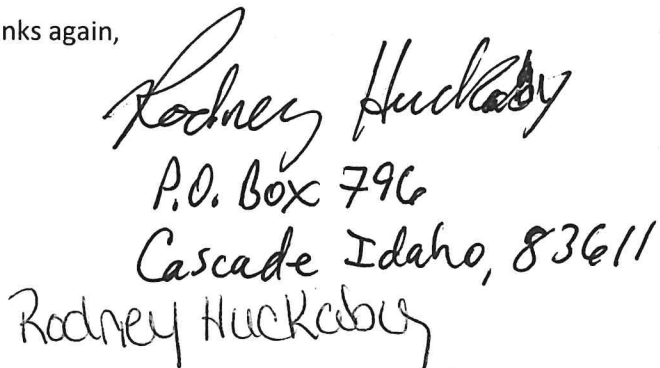 nks again,
Rodney Huckaby
P.O. Box 796
Cascade Idaho, 83611
Rodney Huckaby